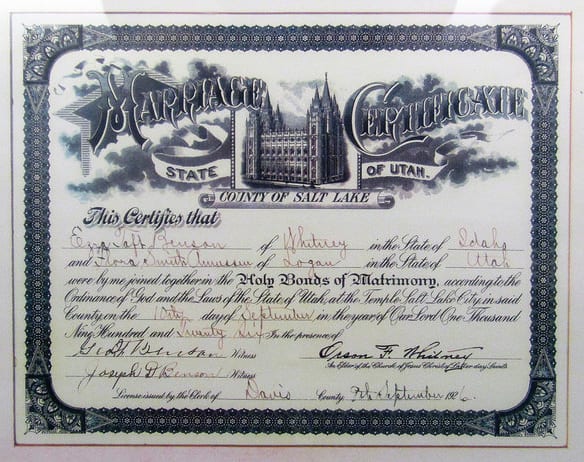 MARRIAGE CERTIFICATE
STATE OF UTAH.
COUNTY OF SALT LAKE
This Certifies that
Ezra Taft Benson of Whitney in the State of Idaho
and Flora Smith Amussen of Logan in the State of Utah
were by me joined together in the Holy Bonds of Matrimony, according to the
Ordinance of God and the Laws of the State of Utah, at the Temple Salt Lake City in said
County on the 10th day of September in the year of Our Lord One Thousand
Nine Hundred and Twenty Six In the presence of
Geo T Benson Witness Orson F. Whitney
An Elder of the Church of Jesus Christ of Latter-day Saints
Joseph D Benson Witness
License issued by the Clerk of Davis County 7th September 1926.